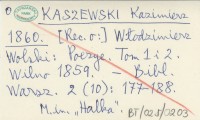 KASZEWSKI Kazimierz
1860. [Rec. o:] Włodzimierz
Wolski: Poezye. Tom 1 i 2.
Wilno 1859. – Bibl.
Warsz. 2 (10): 177-188.
M.in. „Halka".
BT/023/0203